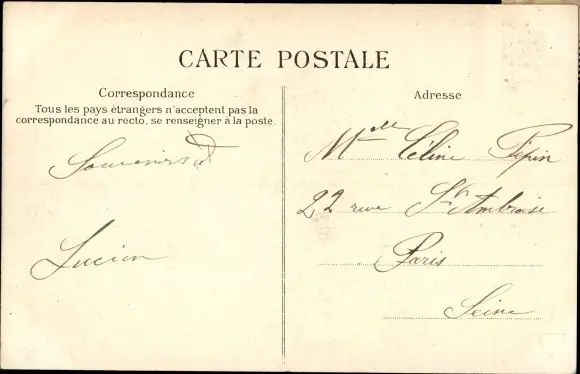 CARTE POSTALE
Correspondance
Tous les pays étrangers n'acceptent pas la
correspondance au recto, se renseigner à la poste.
Souvenirs
Lucien
Adresse
Melle Céline Pépin
22 rue St Ambroise
Paris
Seine